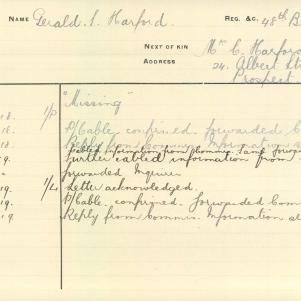 NAME Gerald. S. Harford. REG. &C. 48th B
NEXT OF KIN Mr C. Harford
ADDRESS 24. Albert St
Prospect
18. 1/P "Missing"
18. P/Cable. confirmed. forwarded C
18. Reply from Commrs. Information a
19. further cabled information from
forwarded Inquire
19. 1/L Letter acknowledged.
19. P/Cable. confirmed. forwarded Com
19. Reply from Commrs. Information al